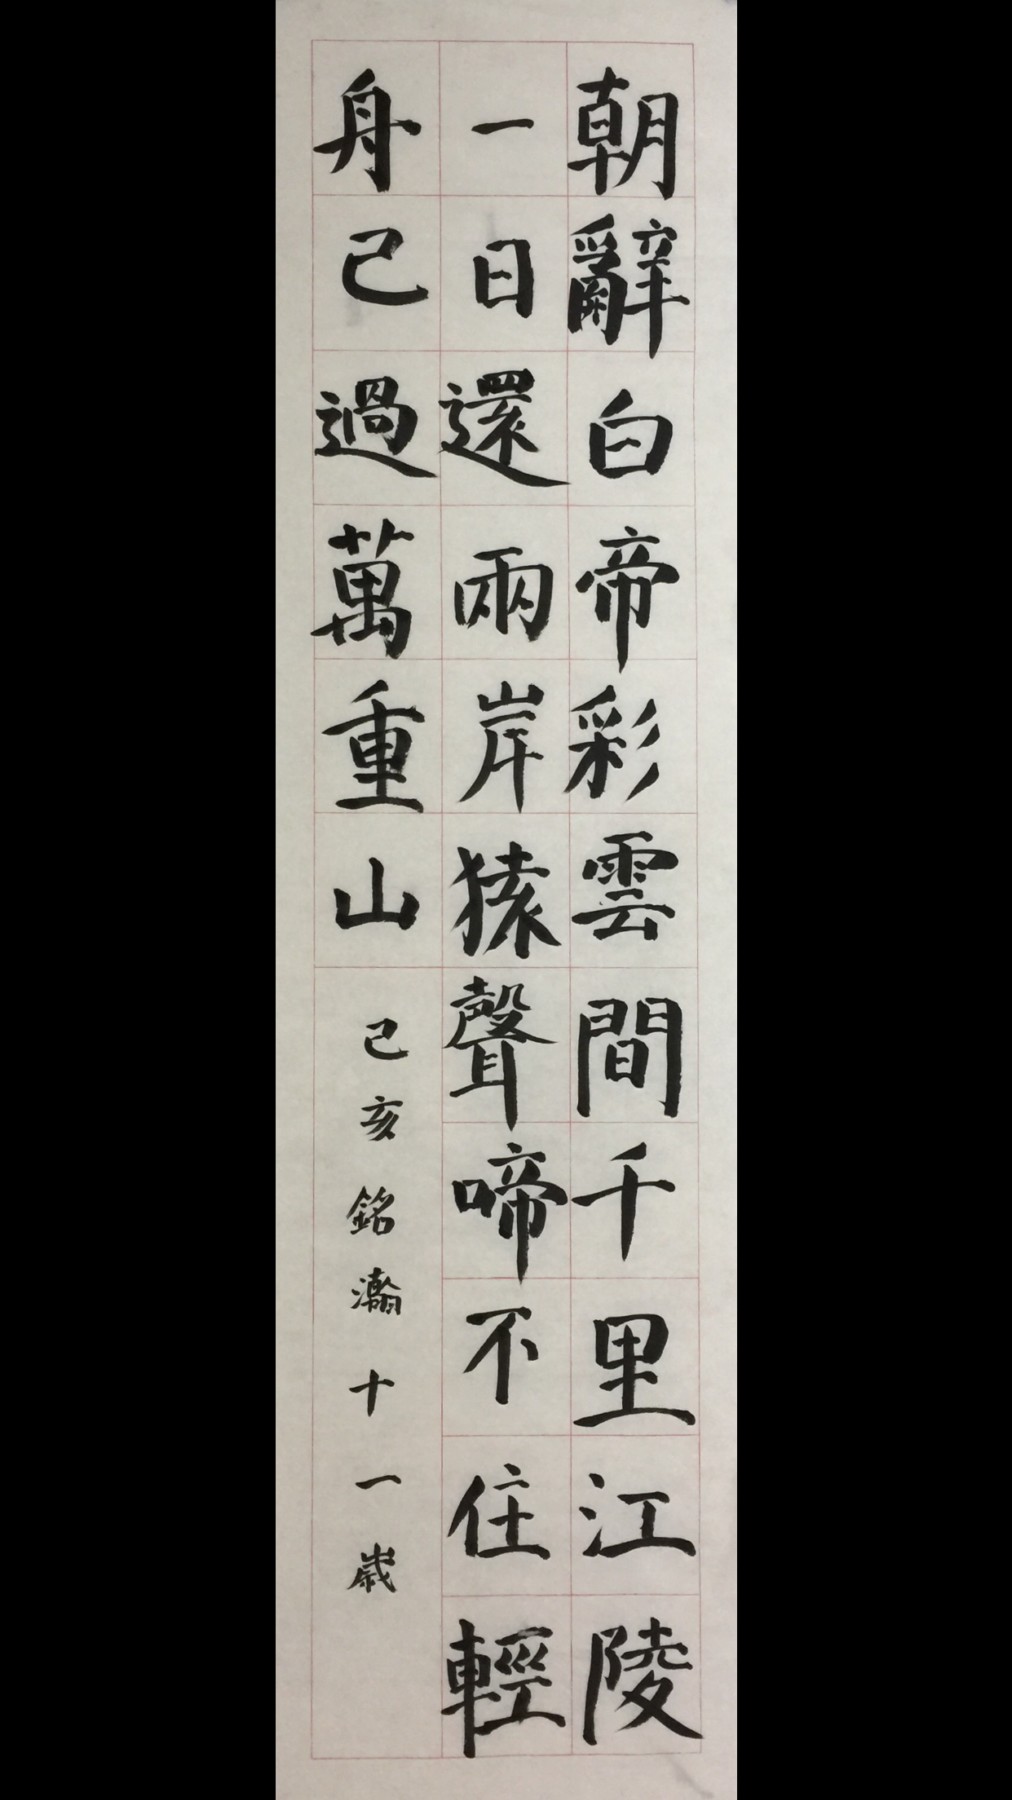 朝辭白帝彩雲間千里江陵
一日還兩岸猿聲啼不住輕
舟已過萬重山
己亥銘瀚十一歲